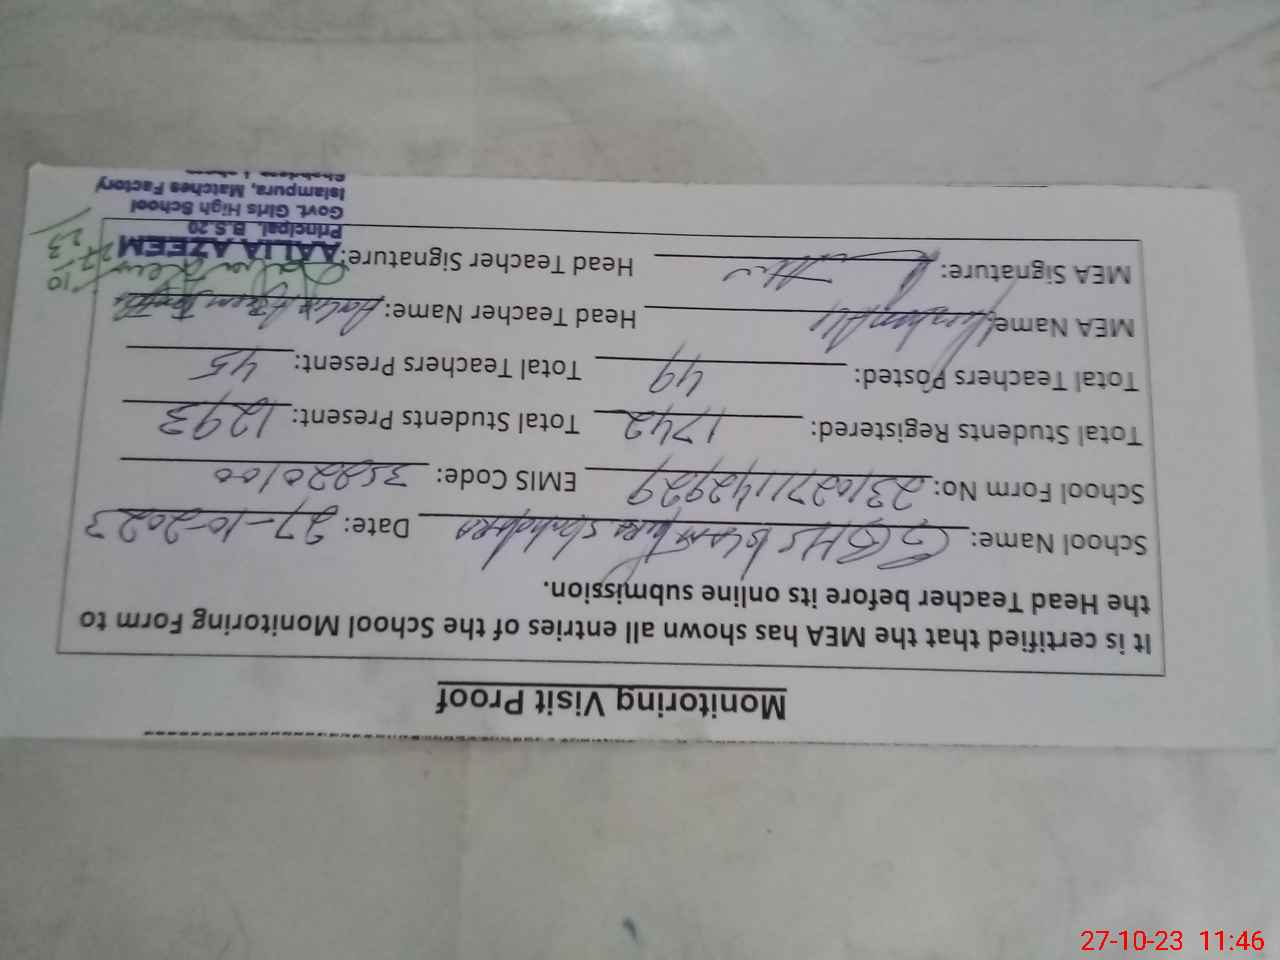 Monitoring Visit Proof
It is certified that the MEA has shown all entries of the School Monitoring Form to
the Head Teacher before its online submission.
School Name: GGHS Islampura Shahdara Date: 27-10-2023
School Form No: 231027142929 EMIS Code: 35220100
Total Students Registered: 1742 Total Students Present: 1293
Total Teachers Posted: 49 Total Teachers Present: 45
MEA Name: Head Teacher Name: Aalia Azeem
MEA Signature: Head Teacher Signature:
AALIA AZEEM
Principal B.S.20
Govt. Girls High School
Islampura, Matches Factory
Shahdara Lahore
27-10-23 11:46